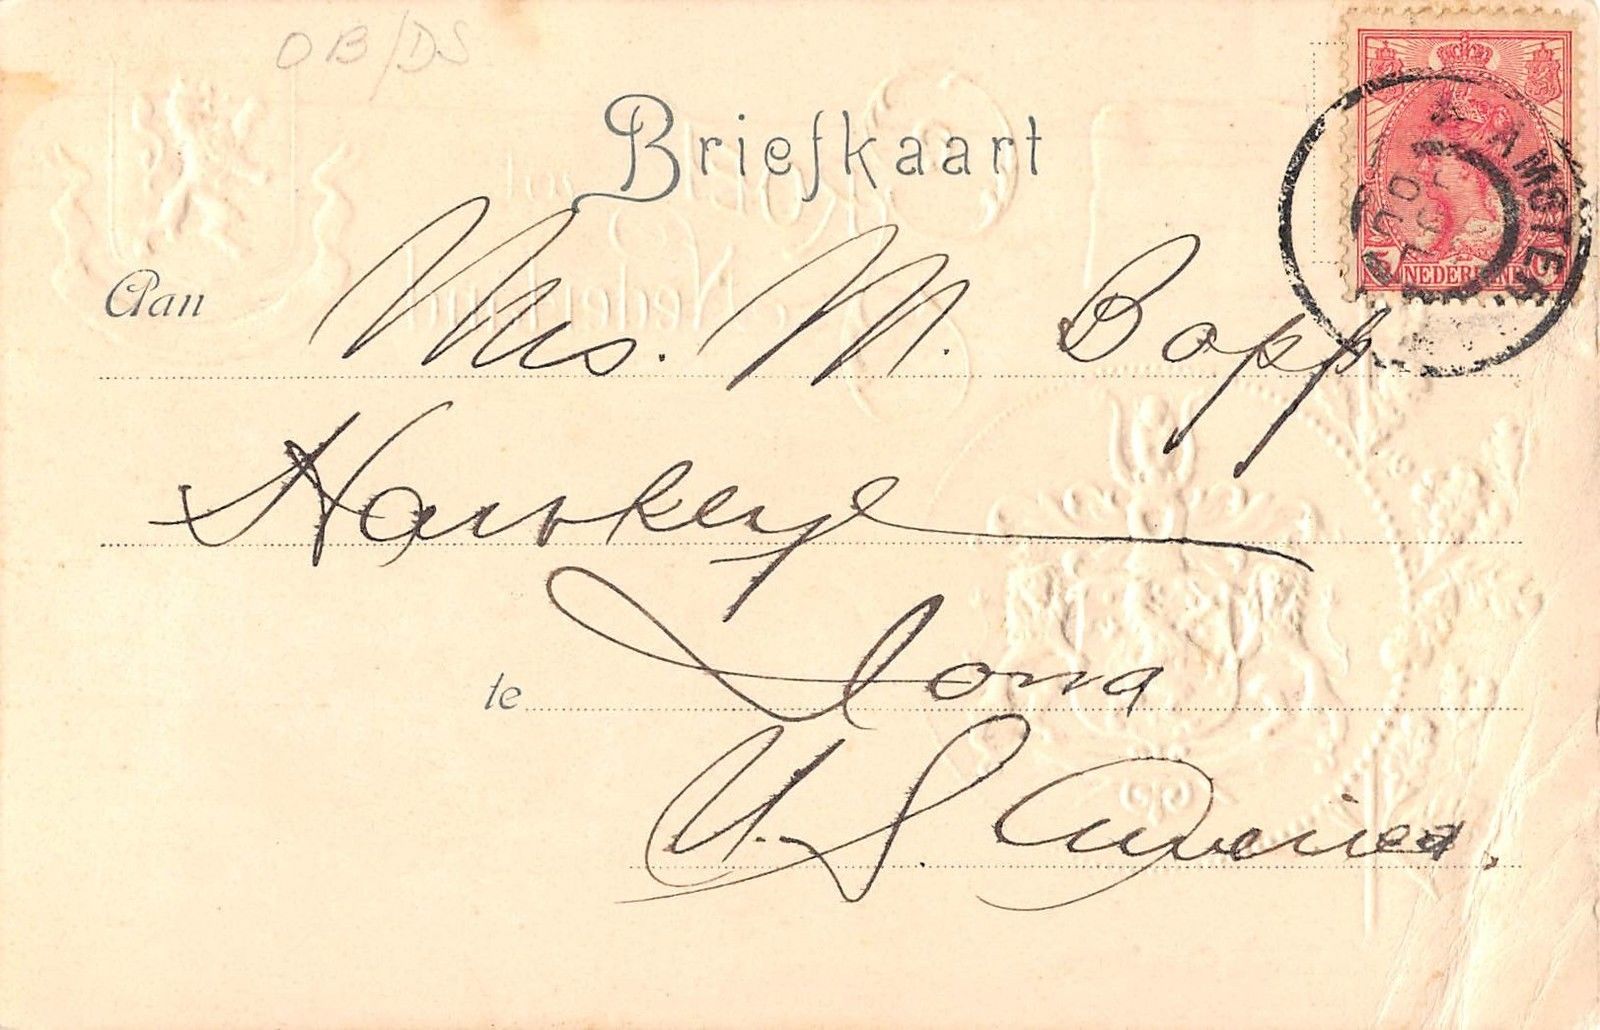 OB/DS
Briefkaart
Aan Mrs. M. Bopp
Hawkeye
te Iowa
U.S. America.
NEDERLAND
AMSTER